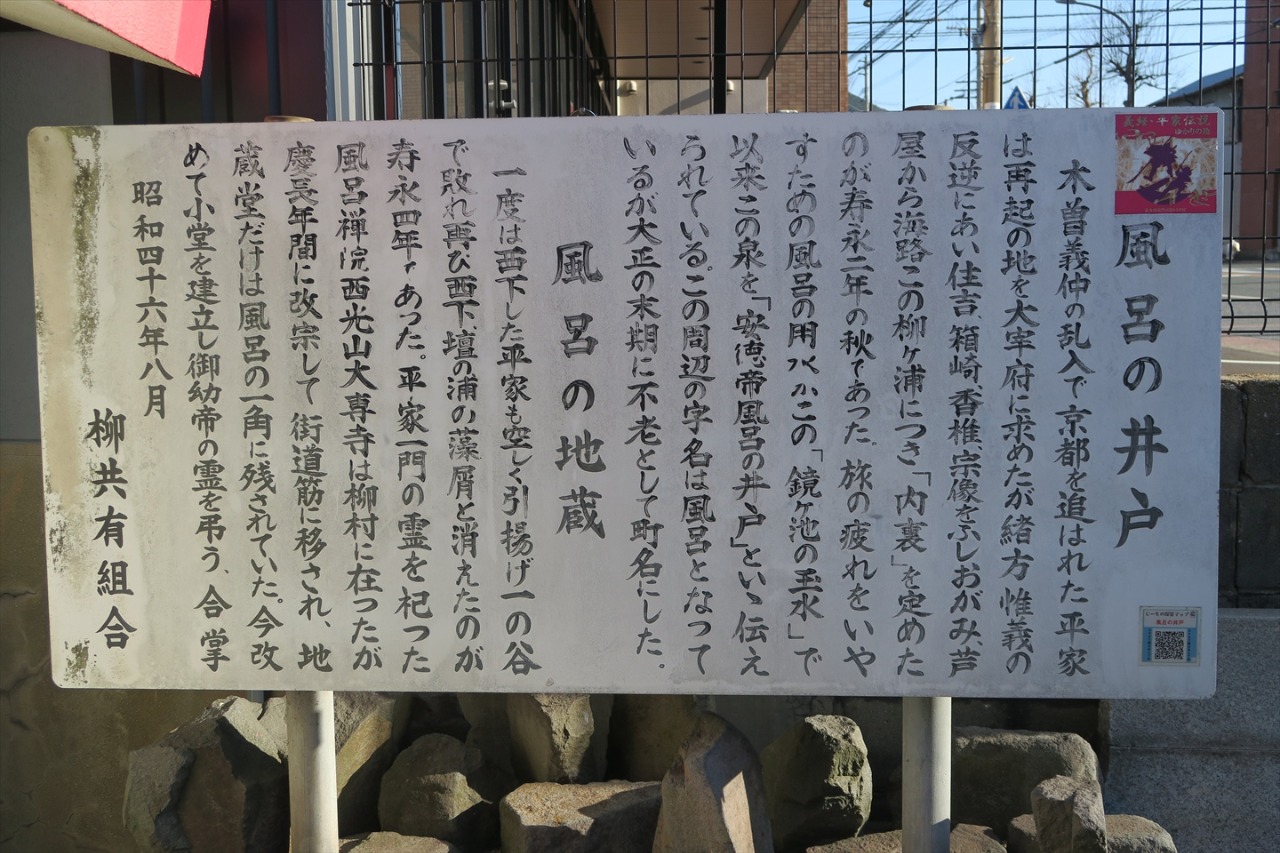 風呂の井戸
木曽義仲の乱入で京都を追はれた平家
は再起の地を大牢府に求めたが緒方惟義の
反逆にあい住吉、箱崎、香椎宗像をふしおがみ、芦
屋から海路この柳ヶ浦につき「内裏」を定めた
のが寿永二年の秋であった。旅の疲れをいや
すための風呂の用水がこの「鏡ヶ池の玉水」で
以来この泉を「安徳帝風呂の井戸」といゝ伝え
うれている。この周辺の字名は風呂となって
いるが大正の末期に不老として町名にした。
風呂の地蔵
一度は西下した平家も空しく引揚げ一の谷
で敗れ再び西下壇の浦の藻屑と消えたのが
寿永四年であった。平家一門の霊を祀った
風呂禅院西光山大専寺は柳村に在つたが
慶長年間に改宗して街道筋に移され、地
蔵堂だけは風呂の一角に残されていた。今改
めて小堂を建立し御幼帝の霊を弔う、合掌
昭和四十六年八月
柳共有組合
義経・平家伝説
ゆかりの地
風呂の井戸